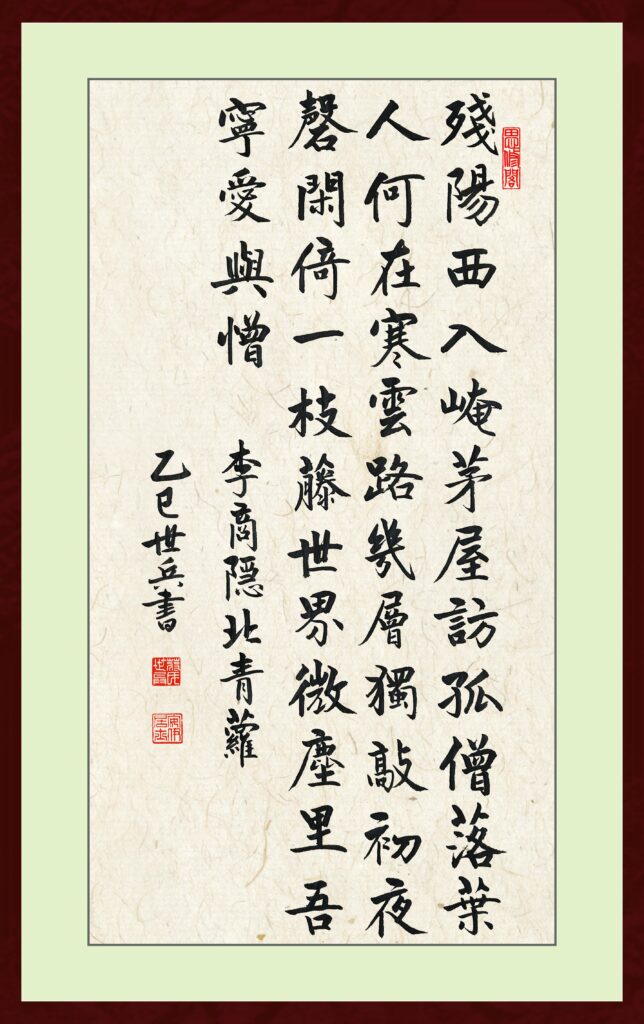 思修閣
殘陽西入崦茅屋訪孤僧落葉
人何在寒雲路幾層獨敲初夜
磬閑倚一枝藤世界微塵里吾
寧愛與憎
李商隱北青蘿
乙巳世兵書